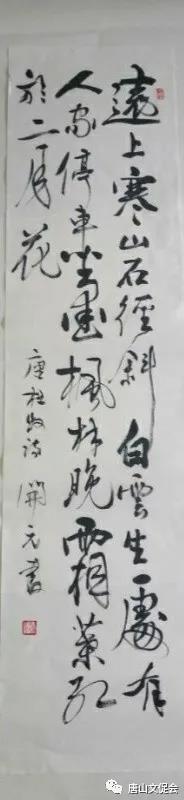 遠上寒山石徑斜白雲生處有
人家停車坐愛楓林晚霜葉紅
於二月花
唐杜牧詩 開元書
唐山文促会